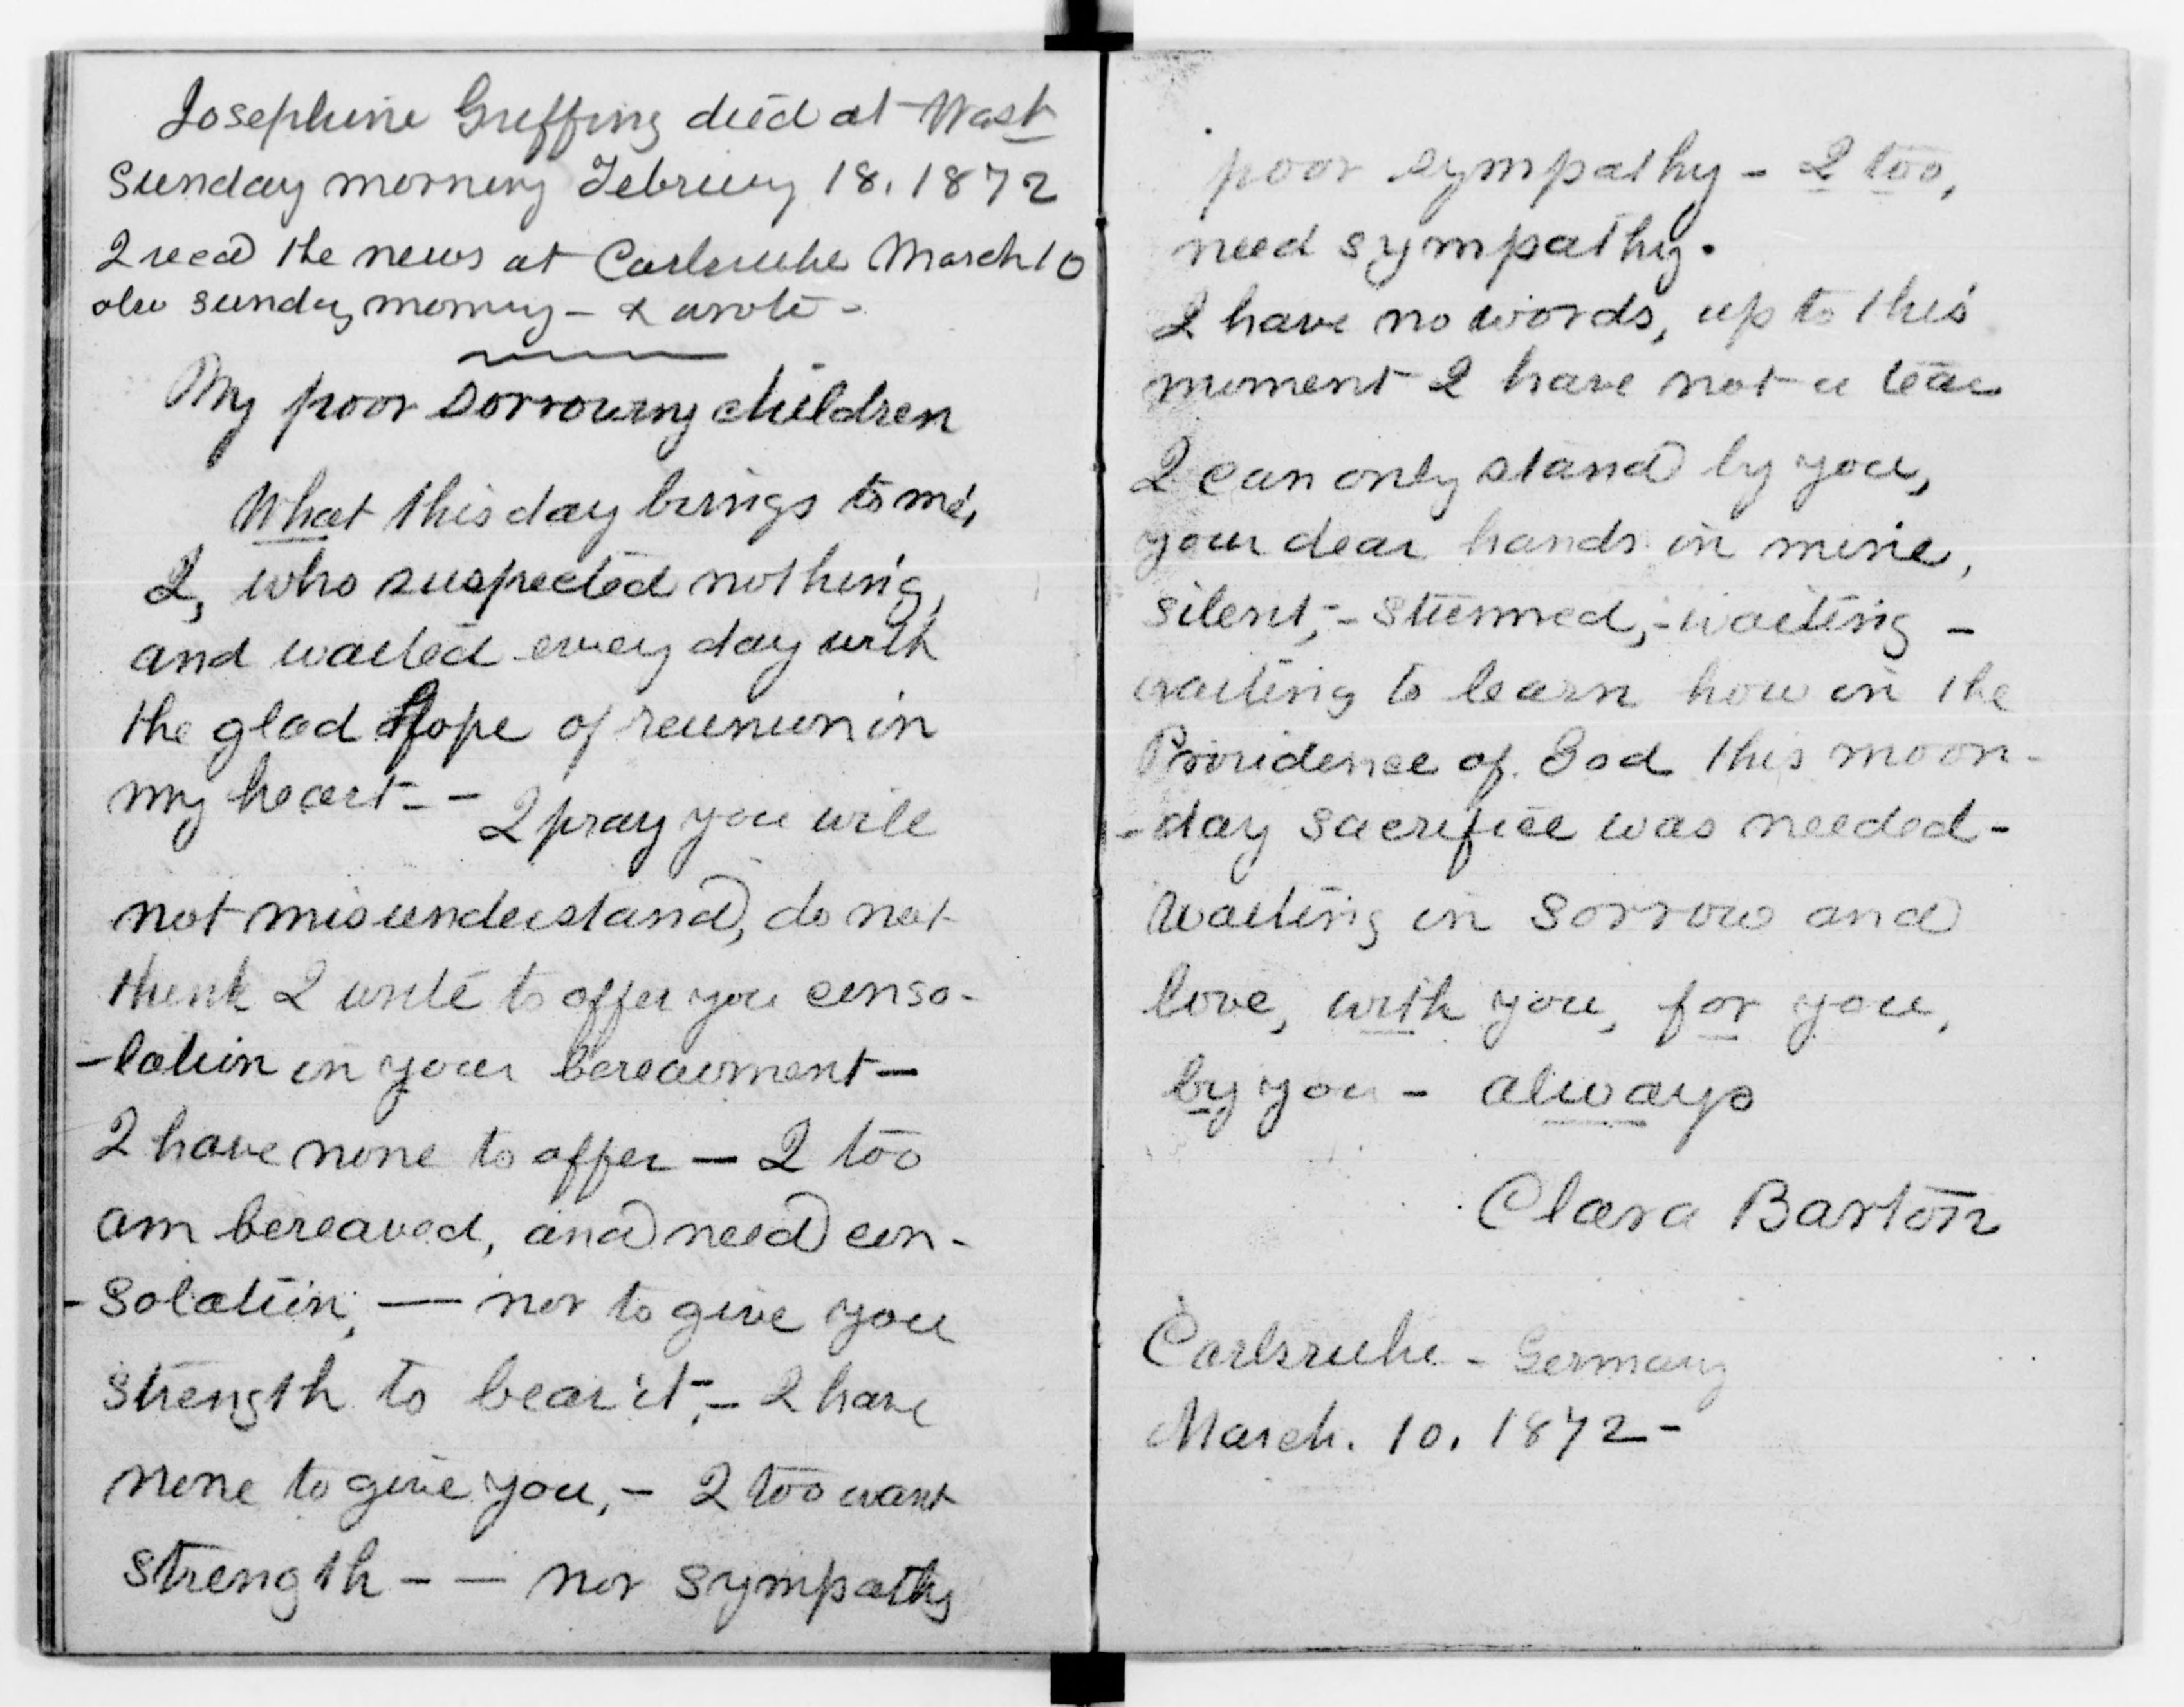 Josephine Griffing died at Wash
Sunday morning February 18. 1872
I recd the news at Carlsruhe March 10
also Sunday morning - & wrote -
My poor sorrowing children
What this day brings to me,
I, who suspected nothing,
and waited every day with
the glad hope of reunion in
my heart - - I pray you will
not misunderstand, do not
think I write to offer you conso-
-lation in your bereavment -
I have none to offer - I too
am bereaved, and need con-
-solation, - nor to give you
strength to bear it, - I have
none to give you, - I too want
strength - - nor sympathy
poor sympathy - I too,
need sympathy.
I have no words, up to this
moment I have not a tear
I can only stand by you,
your dear hands in mine,
silent, - stunned, - waiting -
waiting to learn how in the
Providence of God this noon-
-day sacrifice was needed -
Waiting in sorrow and
love, with you, for you,
by you - always
Clara Barton
Carlsruhe - Germany
March. 10. 1872 -